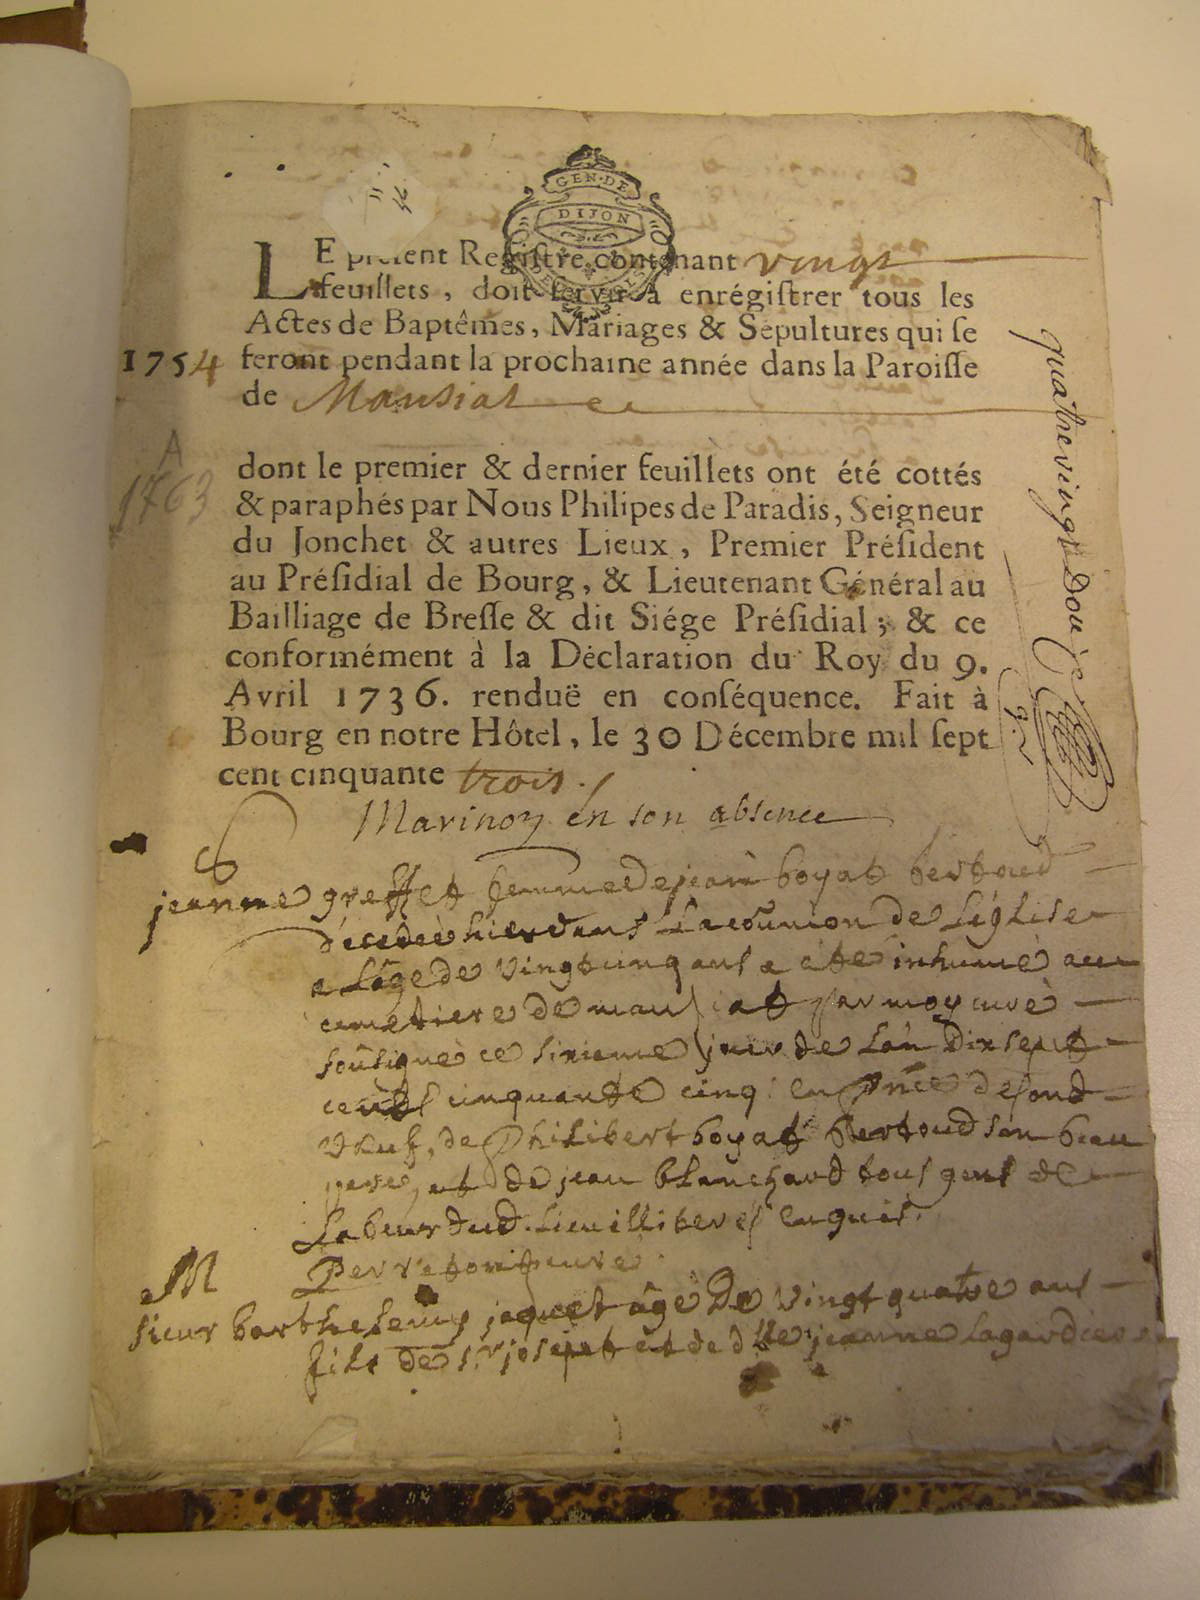 GEN·DE
DIJON
LE present Registre contenant vingt
feuillets, doit servir à enrégistrer tous les
Actes de Baptêmes, Mariages & Sépultures qui se
1754 feront pendant la prochaine année dans la Paroisse
de Mansiat
A
1763
dont le premier & dernier feuillets ont été cottés
& paraphés par Nous Philipes de Paradis, Seigneur
du Jonchet & autres Lieux, Premier Président
au Présidial de Bourg, & Lieutenant Général au
Bailliage de Bresse & dit Siége Présidial; & ce
conformément à la Déclaration du Roy du 9.
Avril 1736. renduë en conséquence. Fait à
Bourg en notre Hôtel, le 30 Décembre mil sept
cent cinquante trois.
Marinon en son absence
quatrevingt Douze
S
jeanne greffet femme de jean boyat bertoud
décédeè hier dans La coũnion de Léglise
a Lâge de vingtcinq ans a été inhumè au
cimetiere de mansiat par moy curè
soũsignè ce sixieme janv de Lan Dix sept
cents cinquante cinq en pñce de sond
veuf, de philibert boyat bertoud son beau
pere, et de jean blanchard tous gens de
Labeur dud. Lieu illiterés enquis.
Perreton curé
M
sieur barthelemy jaquet âgé De vingt quatre ans
fils de sr joseph et de dlle jeanne Lagardiere